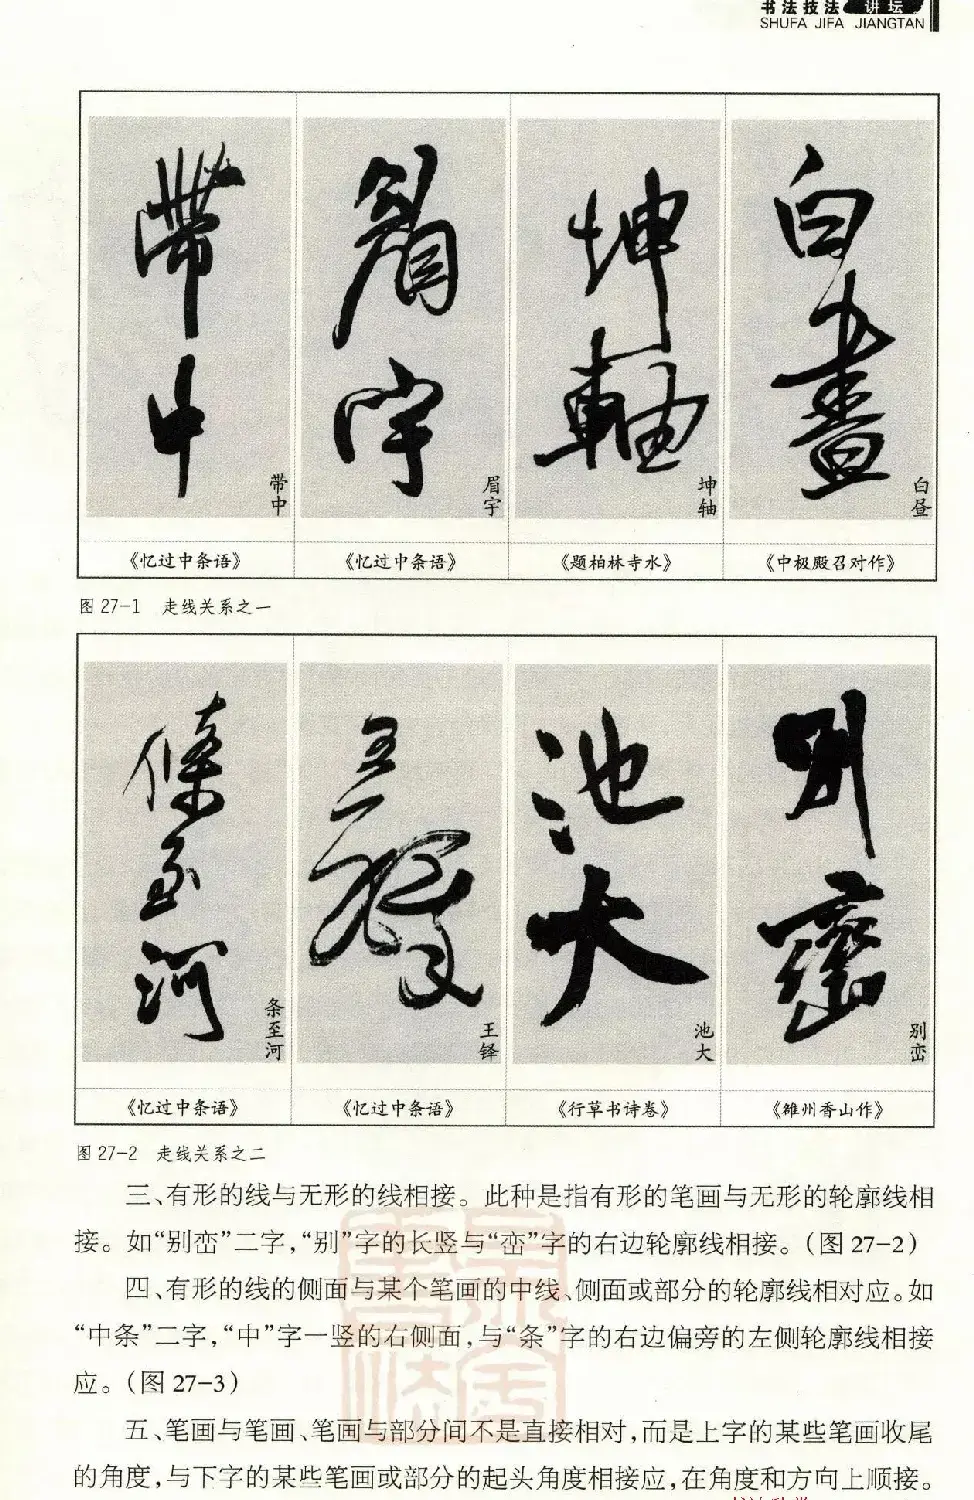 书法技法 讲坛
SHUFA JIFA JIANGTAN
带中
眉宇
坤轴
白昼
《忆过中条语》
《忆过中条语》
《题柏林寺水》
《中极殿召对作》
图 27-1 走线关系之一
条至河
王铎
池大
别峦
《忆过中条语》
《忆过中条语》
《行草书诗卷》
《雒州香山作》
图 27-2 走线关系之二
三、有形的线与无形的线相接。此种是指有形的笔画与无形的轮廓线相
接。如“别峦”二字，“别”字的长竖与“峦”字的右边轮廓线相接。（图 27-2）
四、有形的线的侧面与某个笔画的中线、侧面或部分的轮廓线相对应。如
“中条”二字，“中”字一竖的右侧面，与“条”字的右边偏旁的左侧轮廓线相接
应。（图 27-3）
五、笔画与笔画、笔画与部分间不是直接相对，而是上字的某些笔画收尾
的角度，与下字的某些笔画或部分的起头角度相接应，在角度和方向上顺接。